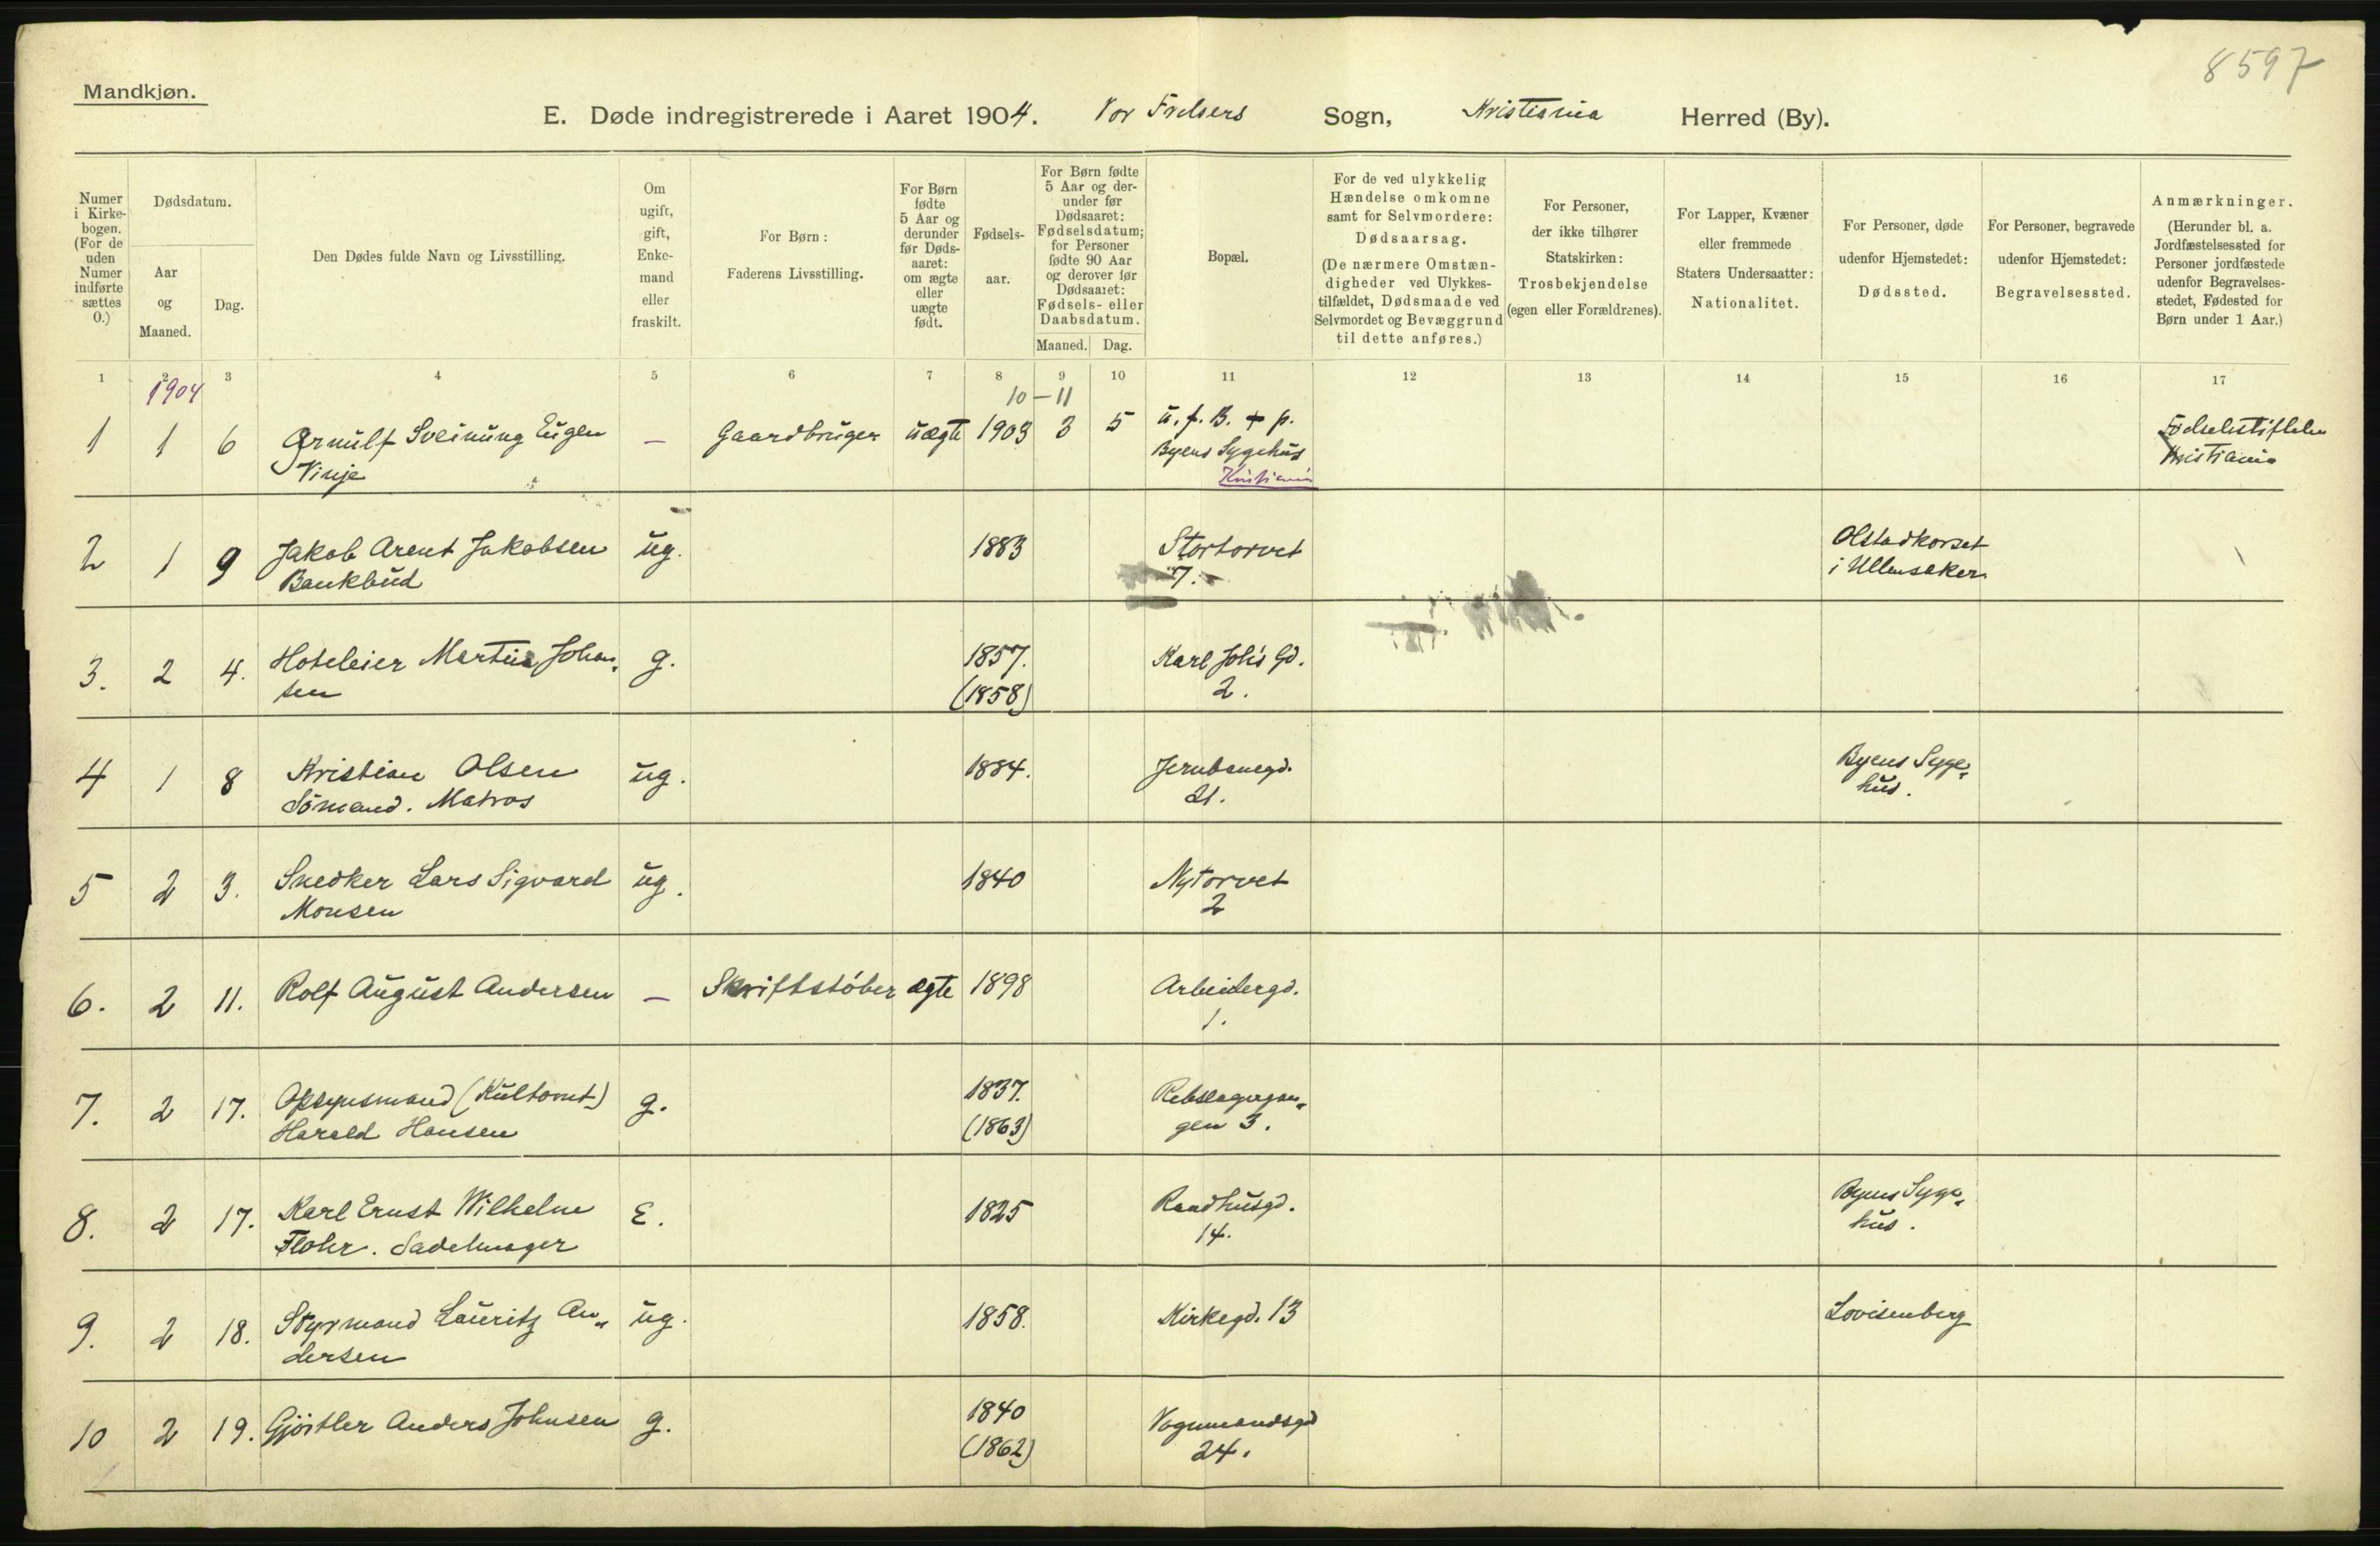 8597
Mandkjøn.
E. Døde indregistrerede i Aaret 1904. Vor Frelsers Sogn, Kristiania Herred (By).
Numer i Kirkebogen. (For de uden Numer indførte sættes 0.)
Dødsdatum.
Aar og Maaned.
Dag.
Den Dødes fulde Navn og Livsstilling.
Om ugift, gift, Enkemand eller fraskilt.
For Børn: Faderens Livsstilling.
For Børn fødte 5 Aar og derunder før Dødsaaret: om ægte eller uægte født.
Fødselsaar.
For Børn fødte 5 Aar og derunder før Dødsaaret: Fødselsdatum; for Personer fødte 90 Aar og derover før Dødsaaret: Fødsels- eller Daabsdatum.
Maaned. Dag.
Bopæl.
For de ved ulykkelig Hændelse omkomne samt for Selvmordere: Dødsaarsag. (De nærmere Omstændigheder ved Ulykkestilfældet, Dødsmaade ved Selvmordet og Bevæggrund til dette anføres.)
For Personer, der ikke tilhører Statskirken: Trosbekjendelse (egen eller Forældrenes).
For Lapper, Kvæner eller fremmede Staters Undersaatter: Nationalitet.
For Personer, døde udenfor Hjemstedet: Dødssted.
For Personer, begravede udenfor Hjemstedet: Begravelsessted.
Anmærkninger. (Herunder bl. a. Jordfæstelsessted for Personer jordfæstede udenfor Begravelsesstedet, Fødested for Børn under 1 Aar.)
1 2 3 4 5 6 7 8 9 10 11 12 13 14 15 16 17
1904
10 – 11
1 1 6 Arnulf Sveinung Eugen – Gaardbruger uægte 1903 3 5 u. f. B. + p. Fødselsstiftelsen
Vinje Byens Sygehus Kristiania
Kristiania
2 1 9 Jakob Arent Jakobsen ug. 1883 Stortorvet Olstadkorset
Bankbud 7. i Ullensaker
3. 2 4. Hoteleier Martin Johan„ g. 1857. Karl Joh's Gd.
sen (1858) 2.
4 1 8 Kristian Olsen ug. 1884. Jernbanegd. Byens Syge„
Sømand. Matros 21. hus.
5 2 3. Snedker Lars Sigvard ug. 1840 Nytorvet
Monsen 2
6. 2 11. Rolf August Andersen – Skriftstøber ægte 1898 Arbeidergd.
1.
7. 2 17. Opsynsmand (Kultomt) g. 1837. Rebslagergan„
Harald Hansen (1863) gen 3.
8. 2 17. Karl Ernst Wilhelm E. 1825 Raadhusgd. Byens Syge„
Flohr. Sadelmager 14. hus.
9. 2 18. Styrmand Lauritz An„ ug. 1858. Kirkegd. 13 Lovisenberg
dersen
10 2 19. Gjørtler Anders Johnsen g. 1840 Vognmandsgd
(1862) 24.